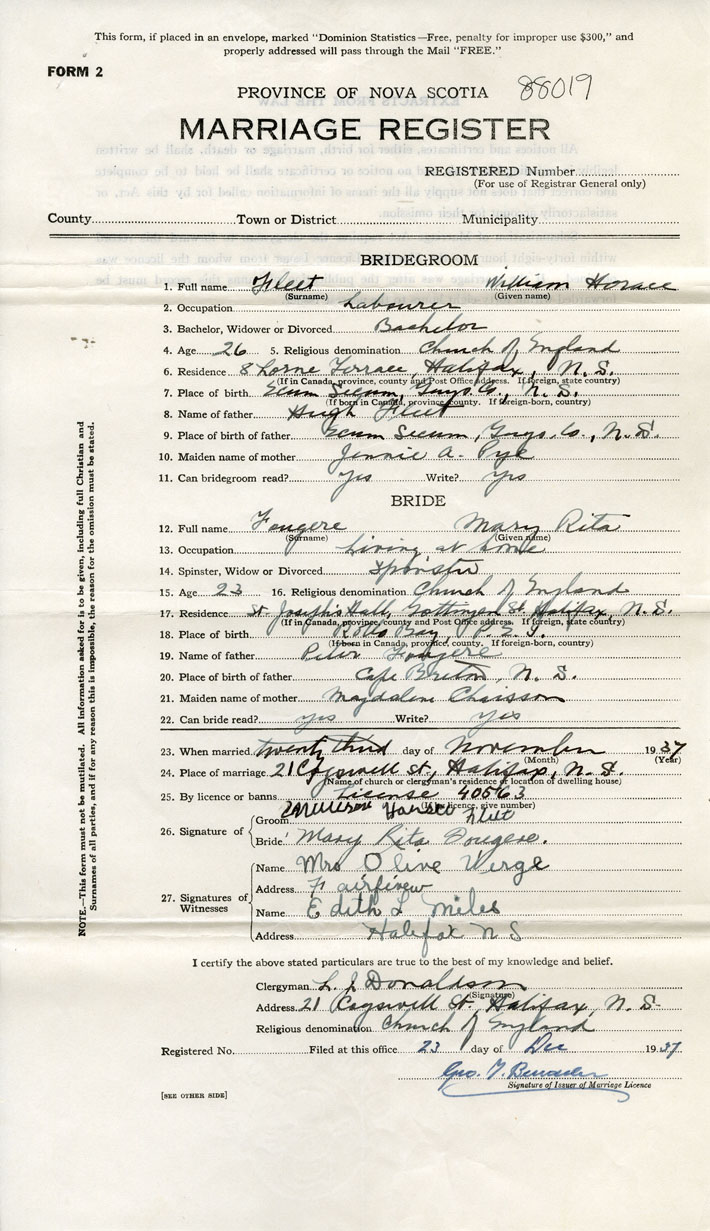 This form, if placed in an envelope, marked "Dominion Statistics—Free, penalty for improper use $300," and
properly addressed will pass through the Mail "FREE."
FORM 2
PROVINCE OF NOVA SCOTIA 88019
MARRIAGE REGISTER
REGISTERED Number
(For use of Registrar General only)
County Town or District Municipality
BRIDEGROOM
1. Full name Fleet William Horace
(Surname) (Given name)
2. Occupation Labourer
3. Bachelor, Widower or Divorced Bachelor
4. Age 26 5. Religious denomination Church of England
6. Residence 8 Lorne Terrace, Halifax, N.S.
(If in Canada, province, county and Post Office address. If foreign, state country)
7. Place of birth Ecum Secum, Guys. Co., N.S.
(If born in Canada, province, county. If foreign-born, country)
8. Name of father Hugh Fleet
9. Place of birth of father Ecum Secum, Guys. Co., N.S.
10. Maiden name of mother Jennie A. Pye
11. Can bridegroom read? Yes Write? Yes
BRIDE
12. Full name Fougere Mary Rita
(Surname) (Given name)
13. Occupation Living at home
14. Spinster, Widow or Divorced Spinster
15. Age 23 16. Religious denomination Church of England
17. Residence St. Joseph's Hall, Gottingen St. Halifax, N.S.
(If in Canada, province, county and Post Office address. If foreign, state country)
18. Place of birth Bay, P.E.I.
(If born in Canada, province, county. If foreign-born, country)
19. Name of father Peter Fougere
20. Place of birth of father Cape Breton, N.S.
21. Maiden name of mother Magdalene Chaisson
22. Can bride read? Yes Write? Yes
23. When married twenty third day of November 1937
(Month) (Year)
24. Place of marriage 21 Cogswell St., Halifax, N.S.
(Name of church or clergyman's residence or location of dwelling house)
25. By licence or banns License 40563
(If by licence, give number)
26. Signature of Groom Fleet
Bride Mary Rita Fougere.
27. Signatures of Witnesses
Name Mrs Olive Werge
Address Fairview
Name Edith L Miles
Address Halifax N S
I certify the above stated particulars are true to the best of my knowledge and belief.
Clergyman L. J. Donaldson
(Signature)
Address 21 Cogswell St. Halifax, N.S.
Religious denomination Church of England
Registered No. Filed at this office 23 day of Dec 1937
Signature of Issuer of Marriage Licence
[SEE OTHER SIDE]
NOTE.—This form must not be mutilated. All information asked for is to be given, including full Christian and
Surnames of all parties, and if for any reason this is impossible, the reason for the omission must be stated.